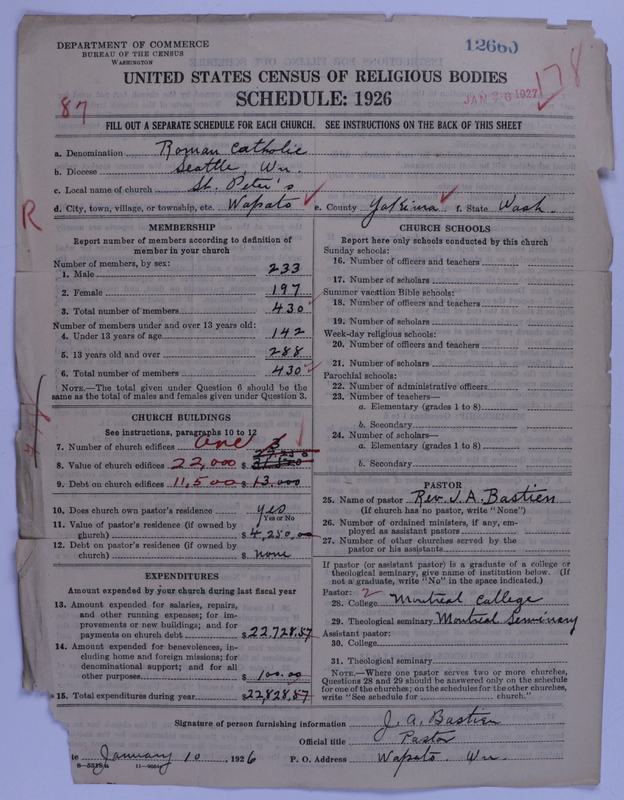 DEPARTMENT OF COMMERCE
BUREAU OF THE CENSUS
WASHINGTON
12660
178
JAN 26 1927
UNITED STATES CENSUS OF RELIGIOUS BODIES
SCHEDULE: 1926
87
FILL OUT A SEPARATE SCHEDULE FOR EACH CHURCH. SEE INSTRUCTIONS ON THE BACK OF THIS SHEET
a. Denomination Roman Catholic
b. Diocese Seattle Wn.
c. Local name of church St. Peter's
d. City, town, village, or township, etc. Wapato e. County Yakima f. State Wash.
R
MEMBERSHIP
Report number of members according to definition of
member in your church
Number of members, by sex:
1. Male 233
2. Female 197
3. Total number of members 430
Number of members under and over 13 years old:
4. Under 13 years of age 142
5. 13 years old and over 288
6. Total number of members 430
NOTE.—The total given under Question 6 should be the
same as the total of males and females given under Question 3.
CHURCH BUILDINGS
See instructions, paragraphs 10 to 12
7. Number of church edifices one 3
8. Value of church edifices 22,000 $
9. Debt on church edifices 11,500 $ 13,000
10. Does church own pastor's residence yes
Yes or No
11. Value of pastor's residence (if owned by
church) $ 4,250.00
12. Debt on pastor's residence (if owned by
church) $ none
EXPENDITURES
Amount expended by your church during last fiscal year
13. Amount expended for salaries, repairs,
and other running expenses; for im-
provements or new buildings; and for
payments on church debt $ 22,728.57
14. Amount expended for benevolences, in-
cluding home and foreign missions; for
denominational support; and for all
other purposes $ 100.00
15. Total expenditures during year $ 22,828.57
CHURCH SCHOOLS
Report here only schools conducted by this church
Sunday schools:
16. Number of officers and teachers
17. Number of scholars
Summer vacation Bible schools:
18. Number of officers and teachers
19. Number of scholars
Week-day religious schools:
20. Number of officers and teachers
21. Number of scholars
Parochial schools:
22. Number of administrative officers
23. Number of teachers—
a. Elementary (grades 1 to 8)
b. Secondary
24. Number of scholars—
a. Elementary (grades 1 to 8)
b. Secondary
PASTOR
25. Name of pastor Rev. J. A. Bastien
(If church has no pastor, write "None")
26. Number of ordained ministers, if any, em-
ployed as assistant pastors
27. Number of other churches served by the
pastor or his assistants
If pastor (or assistant pastor) is a graduate of a college or
theological seminary, give name of institution below. (If
not a graduate, write "No" in the space indicated.)
Pastor: 2
28. College Montreal College
29. Theological seminary Montreal Seminary
Assistant pastor:
30. College
31. Theological seminary
NOTE.—Where one pastor serves two or more churches,
Questions 28 and 29 should be answered only on the schedule
for one of the churches; on the schedules for the other churches,
write "See schedule for church."
Signature of person furnishing information J. A. Bastien
Official title Pastor
te January 10, 1926 P. O. Address Wapato Wn.